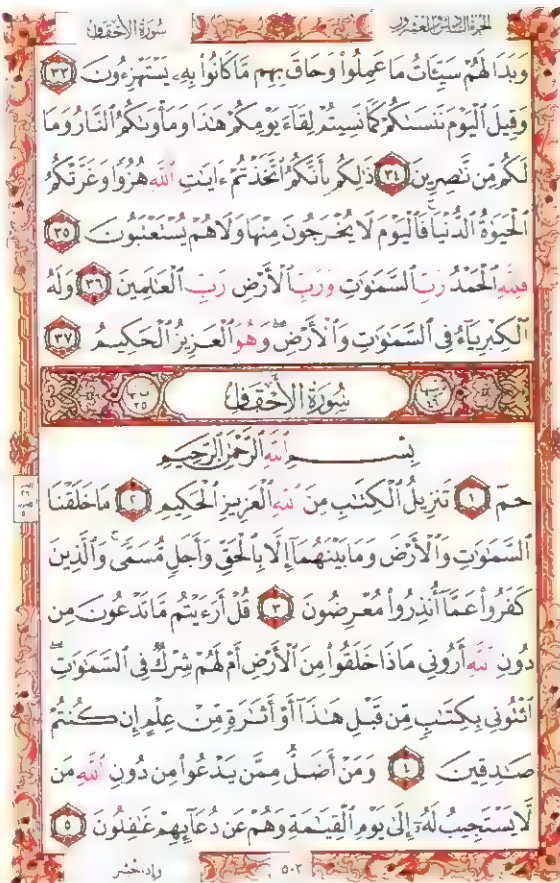 الجزء السادس والعشرون
سُورَةُ الأَحْقَافِ
وَبَدَا لَهُمْ سَيِّـَٔاتُ مَا عَمِلُوا۟ وَحَاقَ بِهِم مَّا كَانُوا۟ بِهِۦ يَسْتَهْزِءُونَ ٣٣
وَقِيلَ ٱلْيَوْمَ نَنسَىٰكُمْ كَمَا نَسِيتُمْ لِقَآءَ يَوْمِكُمْ هَٰذَا وَمَأْوَىٰكُمُ ٱلنَّارُ وَمَا
لَكُم مِّن نَّٰصِرِينَ ٣٤ ذَٰلِكُم بِأَنَّكُمُ ٱتَّخَذْتُمْ ءَايَٰتِ ٱللَّهِ هُزُوًا وَغَرَّتْكُمُ
ٱلْحَيَوٰةُ ٱلدُّنْيَا ۚ فَٱلْيَوْمَ لَا يُخْرَجُونَ مِنْهَا وَلَا هُمْ يُسْتَعْتَبُونَ ٣٥
فَلِلَّهِ ٱلْحَمْدُ رَبِّ ٱلسَّمَٰوَٰتِ وَرَبِّ ٱلْأَرْضِ رَبِّ ٱلْعَٰلَمِينَ ٣٦ وَلَهُ
ٱلْكِبْرِيَآءُ فِى ٱلسَّمَٰوَٰتِ وَٱلْأَرْضِ ۖ وَهُوَ ٱلْعَزِيزُ ٱلْحَكِيمُ ٣٧
سُورَةُ الأَحْقَافِ
بِسْمِ ٱللَّهِ ٱلرَّحْمَٰنِ ٱلرَّحِيمِ
حمٓ ١ تَنزِيلُ ٱلْكِتَٰبِ مِنَ ٱللَّهِ ٱلْعَزِيزِ ٱلْحَكِيمِ ٢ مَا خَلَقْنَا
ٱلسَّمَٰوَٰتِ وَٱلْأَرْضَ وَمَا بَيْنَهُمَآ إِلَّا بِٱلْحَقِّ وَأَجَلٍ مُّسَمًّى ۚ وَٱلَّذِينَ
كَفَرُوا۟ عَمَّآ أُنذِرُوا۟ مُعْرِضُونَ ٣ قُلْ أَرَءَيْتُم مَّا تَدْعُونَ مِن
دُونِ ٱللَّهِ أَرُونِى مَاذَا خَلَقُوا۟ مِنَ ٱلْأَرْضِ أَمْ لَهُمْ شِرْكٌ فِى ٱلسَّمَٰوَٰتِ ۖ
ٱئْتُونِى بِكِتَٰبٍ مِّن قَبْلِ هَٰذَآ أَوْ أَثَٰرَةٍ مِّنْ عِلْمٍ إِن كُنتُمْ
صَٰدِقِينَ ٤ وَمَنْ أَضَلُّ مِمَّن يَدْعُوا۟ مِن دُونِ ٱللَّهِ مَن
لَّا يَسْتَجِيبُ لَهُۥٓ إِلَىٰ يَوْمِ ٱلْقِيَٰمَةِ وَهُمْ عَن دُعَآئِهِمْ غَٰفِلُونَ ٥
٥٠٢
وإذا حشر